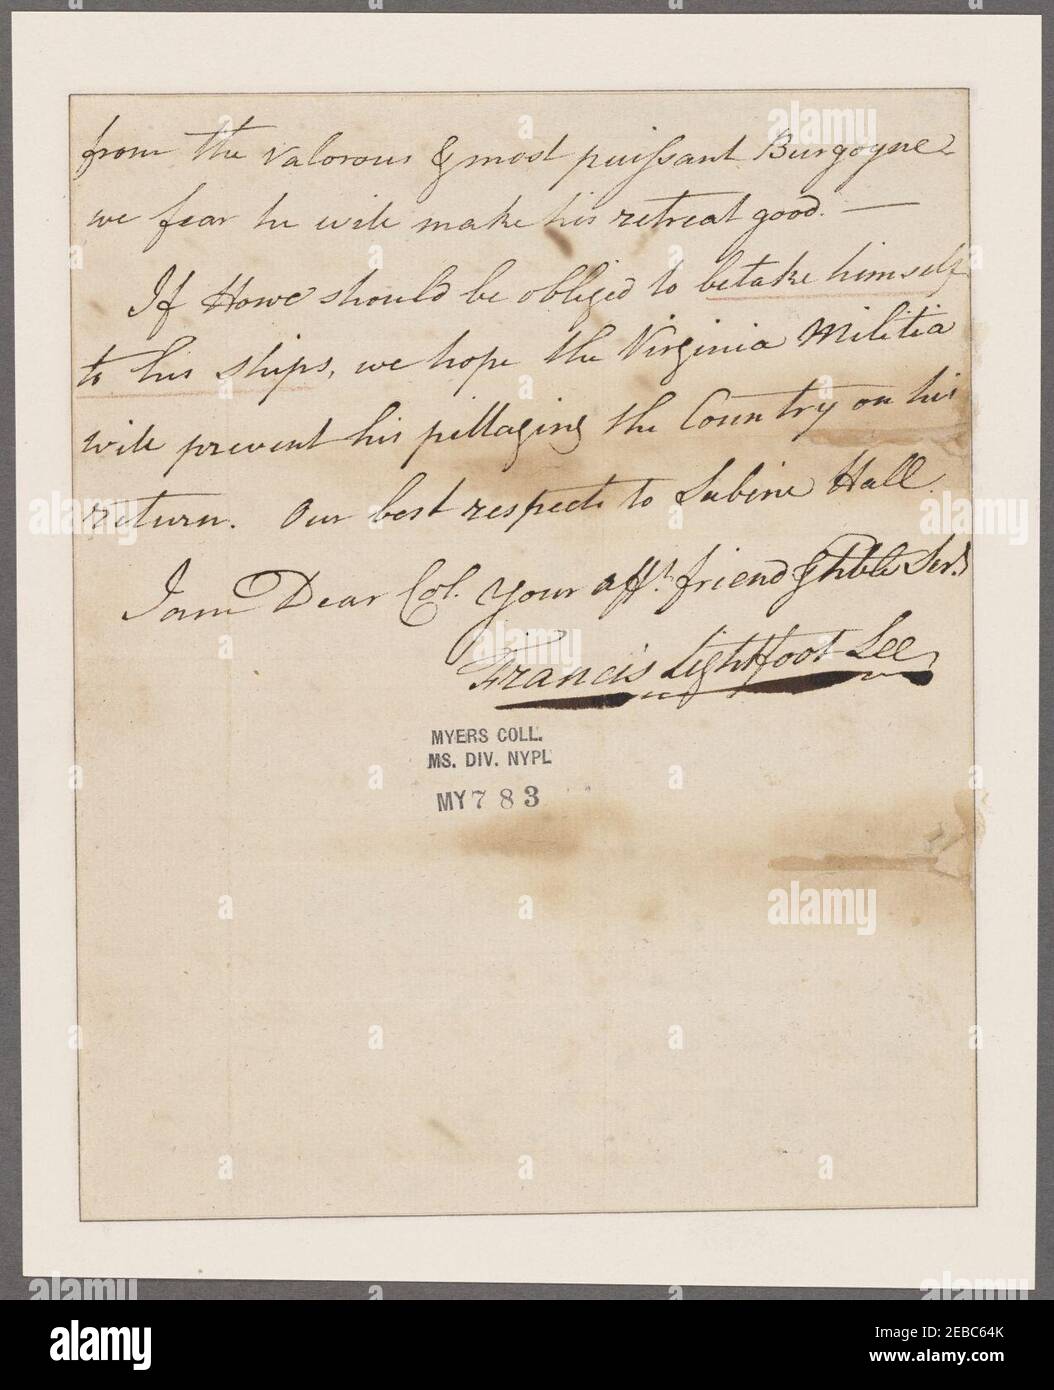 from the valorous & most puissant Burgogne
we fear he will make his retreat good. —
If Howe should be obliged to betake himself
to his ships, we hope the Virginia Militia
will prevent his pillaging the Country on his
return. Our best respects to Sabine Hall.
I am Dear Col. Your afft. friend & hble Servt
Francis Lightfoot Lee
MYERS COLL.
MS. DIV. NYPL
MY783
alamy
alamy
Image ID: 2EBC64K
www.alamy.com